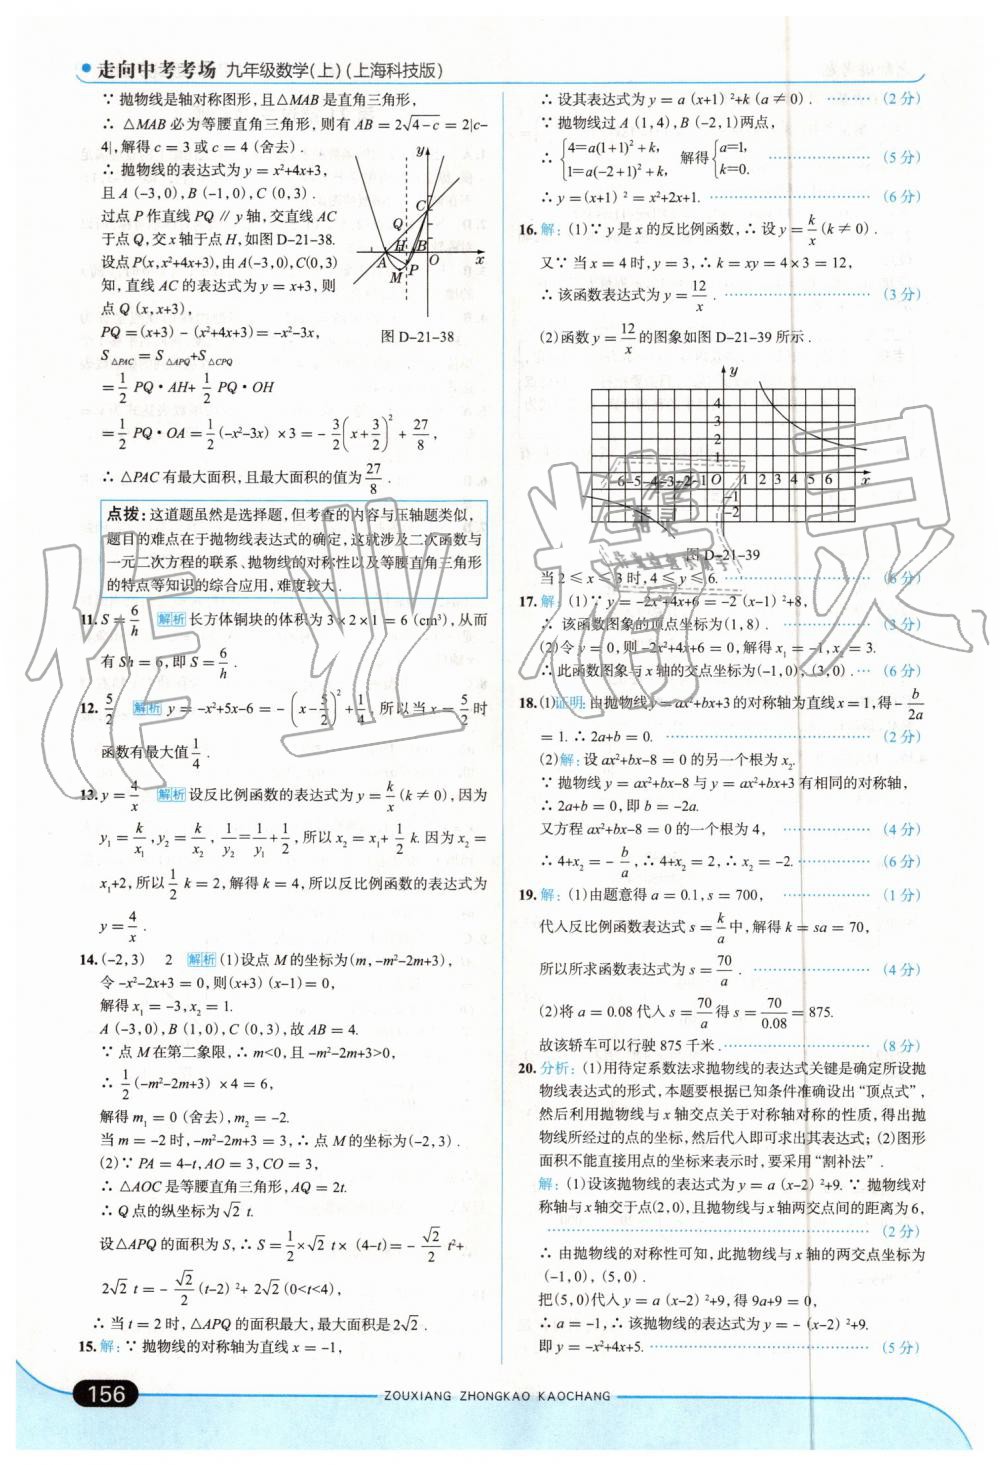 走向中考考场 九年级数学(上)(上海科技版)
∵ 抛物线是轴对称图形,且△MAB 是直角三角形,
∴ △MAB 必为等腰直角三角形,则有 AB = 2√(4-c) = 2|c-
4|,解得 c = 3 或 c = 4 (舍去) .
∴ 抛物线的表达式为 y = x²+4x+3,
且 A (-3,0), B (-1,0), C (0,3) .
过点 P 作直线 PQ ∥ y 轴,交直线 AC
于点 Q,交 x 轴于点 H,如图 D-21-38.
设点 P(x, x²+4x+3),由 A(-3,0),C(0,3)
知,直线 AC 的表达式为 y = x+3,则
点 Q (x, x+3),
PQ = (x+3) - (x²+4x+3) = -x²-3x,
S△PAC = S△APQ+S△CPQ
= 1/2 PQ·AH+ 1/2 PQ·OH
= 1/2 PQ·OA = 1/2 (-x²-3x) ×3 = - 3/2 (x+ 3/2)² + 27/8 ,
∴ △PAC 有最大面积,且最大面积的值为 27/8 .
y
C
Q
H
B
A
O
x
M
P
图 D-21-38
点拨: 这道题虽然是选择题,但考查的内容与压轴题类似,
题目的难点在于抛物线表达式的确定,这就涉及二次函数与
一元二次方程的联系、抛物线的对称性以及等腰直角三角形
的特点等知识的综合应用,难度较大 .
11. S = 6/h 解析 长方体铜块的体积为 3×2×1 = 6 (cm³),从而
有 Sh = 6,即 S = 6/h .
12. 5/2 解析 y = -x²+5x-6 = - (x- 5/2)² + 1/4 ,所以当 x = 5/2 时
函数有最大值 1/4 .
13. y = 4/x 解析 设反比例函数的表达式为 y = k/x (k ≠ 0),因为
y₁ = k/x₁ , y₂ = k/x₂ , 1/y₂ = 1/y₁ + 1/2 ,所以 x₂ = x₁+ 1/2 k. 因为 x₂ =
x₁+2,所以 1/2 k = 2,解得 k = 4,所以反比例函数的表达式为
y = 4/x .
14. (-2,3) 2 解析 (1)设点 M 的坐标为(m, -m²-2m+3),
令 -x²-2x+3 = 0,则(x+3) (x-1) = 0,
解得 x₁ = -3, x₂ = 1.
A (-3,0), B (1,0), C (0,3),故 AB = 4.
∵ 点 M 在第二象限,∴ m<0,且 -m²-2m+3>0,
∴ 1/2 (-m²-2m+3) ×4 = 6,
解得 m₁ = 0 (舍去), m₂ = -2.
当 m = -2 时, -m²-2m+3 = 3,∴ 点 M 的坐标为(-2,3) .
(2)∵ PA = 4-t, AO = 3, CO = 3,
∴ △AOC 是等腰直角三角形, AQ = 2t.
∴ Q 点的纵坐标为√2 t.
设△APQ 的面积为 S,∴ S = 1/2 ×√2 t× (4-t) = - √2/2 t²+
2√2 t = - √2/2 (t-2) ²+ 2√2 (0<t<4),
∴ 当 t = 2 时,△APQ 的面积最大,最大面积是2√2 .
15. 解: ∵ 抛物线的对称轴为直线 x = -1,
∴ 设其表达式为 y = a (x+1) ²+k (a ≠ 0) . ……… (2 分)
∵ 抛物线过 A (1,4), B (-2,1)两点,
∴ {4=a(1+1)²+k, 1=a(-2+1)²+k, 解得 {a=1, k=0. ……… (5 分)
∴ y = (x+1) ² = x²+2x+1. ……… (6 分)
16. 解: (1)∵ y 是 x 的反比例函数,∴ 设 y = k/x (k ≠ 0) .
又∵ 当 x = 4 时, y = 3,∴ k = xy = 4×3 = 12,
∴ 该函数表达式为 y = 12/x . ……… (3 分)
(2)函数 y = 12/x 的图象如图 D-21-39 所示 .
y
4
3
2
1
-6-5-4-3-2-1 O 1 2 3 4 5 6 x
-1
-2
图 D-21-39
当 2 ≤ x ≤ 3 时, 4 ≤ y ≤ 6. ……… (6 分)
17. 解: (1)∵ y = -2x²+4x+6 = -2 (x-1) ²+8,
∴ 该函数图象的顶点坐标为(1,8) . ……… (3 分)
(2)令 y = 0,则 -2x²+4x+6 = 0,解得 x₁ = -1, x₂ = 3.
∴ 此函数图象与 x 轴的交点坐标为(-1,0), (3,0) . … (6 分)
18. (1)证明: 由抛物线 y = ax²+bx+3 的对称轴为直线 x = 1,得- b/2a
= 1. ∴ 2a+b = 0. ……… (2 分)
(2)解: 设 ax²+bx-8 = 0 的另一个根为 x₂.
∵ 抛物线 y = ax²+bx-8 与 y = ax²+bx+3 有相同的对称轴,
∴ 2a+b = 0,即 b = -2a.
又方程 ax²+bx-8 = 0 的一个根为 4, ……… (4 分)
∴ 4+x₂ = - b/a ,∴ 4+x₂ = 2,∴ x₂ = -2. ……… (6 分)
19. 解: (1)由题意得 a = 0.1, s = 700, ……… (1 分)
代入反比例函数表达式 s = k/a 中,解得 k = sa = 70,
所以所求函数表达式为 s = 70/a . ……… (4 分)
(2)将 a = 0.08 代入 s = 70/a 得 s = 70/0.08 = 875.
故该轿车可以行驶 875 千米 . ……… (8 分)
20. 分析: (1)用待定系数法求抛物线的表达式关键是确定所设抛
物线表达式的形式,本题要根据已知条件准确设出“顶点式”,
然后利用抛物线与 x 轴交点关于对称轴对称的性质,得出抛
物线所经过的点的坐标,然后代入即可求出其表达式;(2)图形
面积不能直接用点的坐标来表示时,要采用“割补法” .
解: (1)设该抛物线的表达式为 y = a (x-2) ²+9. ∵ 抛物线对
称轴与 x 轴交于点(2,0),且抛物线与 x 轴两交点间的距离为 6,
……… (2 分)
∴ 由抛物线的对称性可知,此抛物线与 x 轴的两交点坐标为
(-1,0), (5,0) .
把(5,0)代入 y = a (x-2) ²+9,得 9a+9 = 0,
∴ a = -1,∴ 该抛物线的表达式为 y = - (x-2) ²+9.
即 y = -x²+4x+5. ……… (5 分)
作业精灵
156
ZOUXIANG ZHONGKAO KAOCHANG